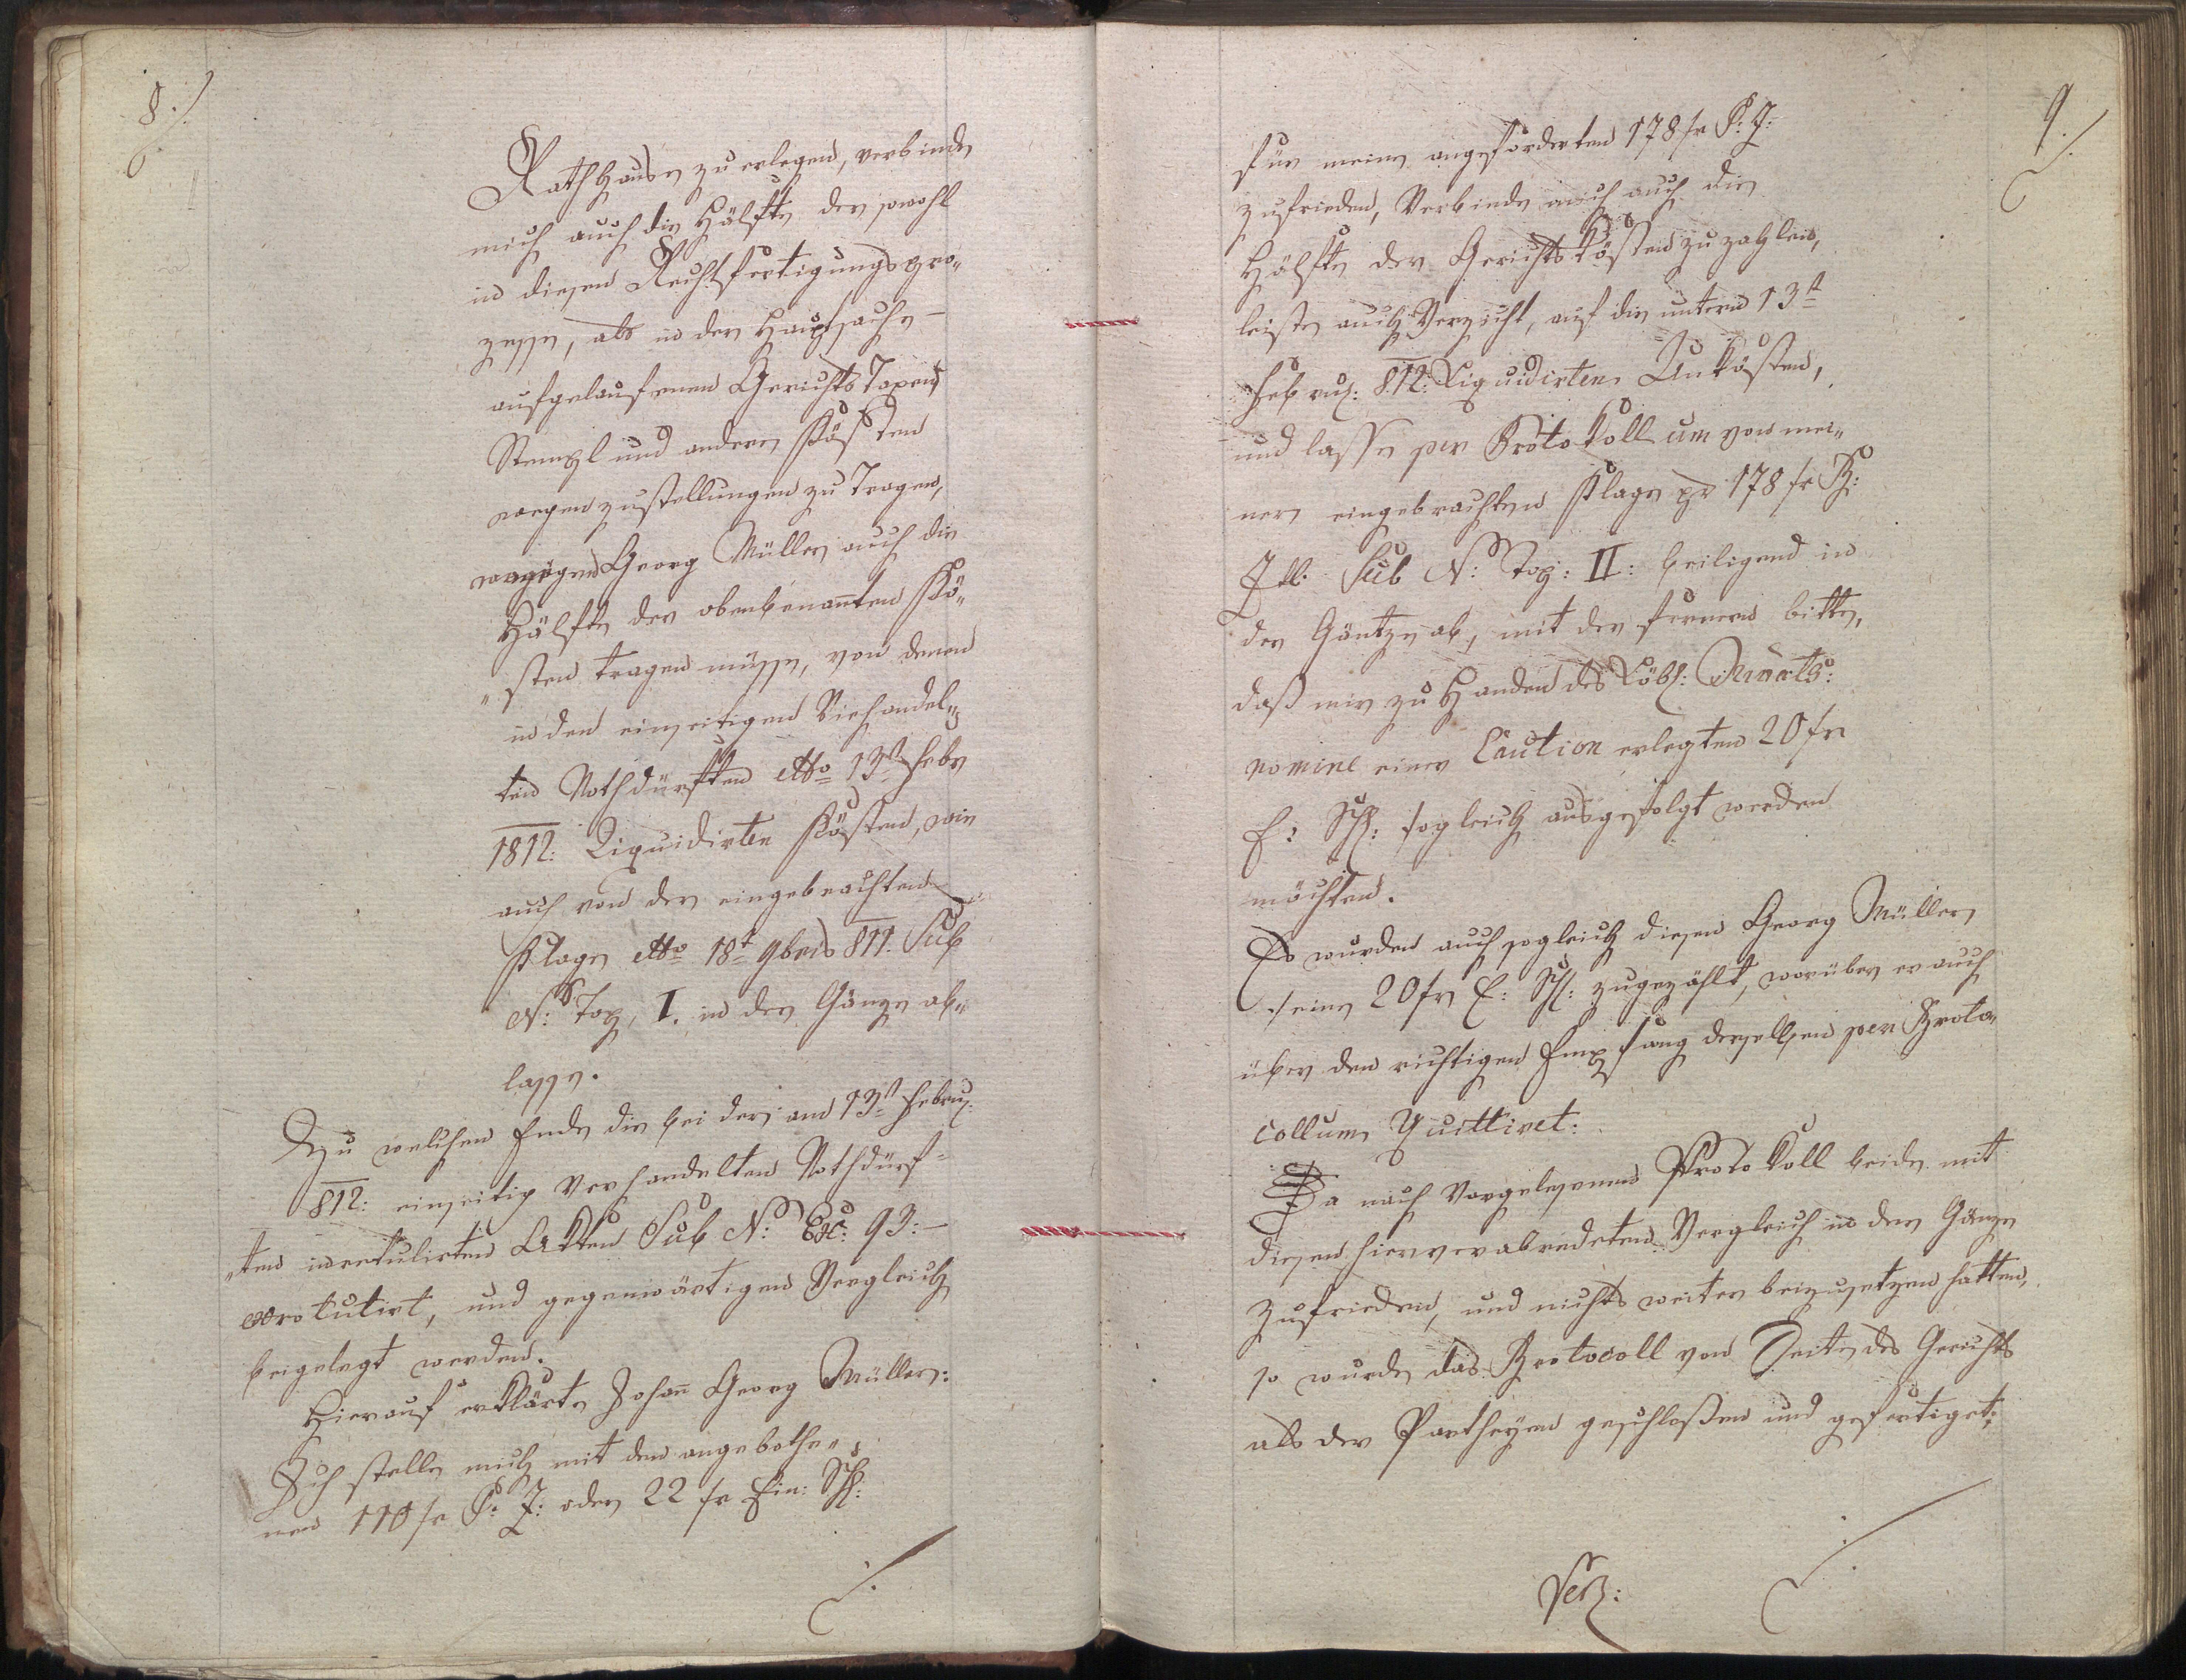 8./.
Rathhause zu erlegen, verbinde
mich auch die Hälfte der sowohl
in diesen Rechtfertigungspro„
zesse, als in der Hauptsache –
aufgelaufenen Gerichts Taxen
Stempl und andere Kösten
wegen zustellungen zu Tragen,
wogegen Georg Müller auch die
Hälfte der obenbenañten Kö„
„sten tragen müsse, von denen
in den einseitigen Verhandel„
ten Nothdürften dtto 13t Febr
1812: Liquidirten Kösten, wie
auch von der eingebrachten
Klage dtto 18t 9bris 811. Sub
N: Top. I. in der Gänze ab„
lasse.
Zu welchen Ende die bei der am 13t Febru:
812: einseitig Verhandelten Nothdürf=
„ten inrotulirten Akten Sub N: Exc: 93:–
exrotulirt, und gegenwärtigen Vergleich
beigelegt werden.
Hierauf erklärte Johañ Georg Müller:
Ich stelle mich mit den angebothe„
nen 110 fr B: Z: oder 22 fr Ein: Sch:
./.
9./.
für meine angeforderten 178 fr B: Z:
zufrieden, Verbinde mich auch die
Hälfte der Gerichtskösten zu zahlen,
leiste auch Verzicht, auf die untern 13t
Febru: 812: Liquidirten Unkösten,
und lasse per Protokoll um von mei„
ner eingebrachten Klage pr 178 fr B:
Ztl. Sub N: Top: II: beiliegend in
der Gäntze ab, mit der fernern bitte,
daß mir zu Handen des Löbl:
nomine einer Caution erlegten 20 fr
E: Sch: sogleich ausgefolgt werden
möchten.
Es wurden auch sogleich diesen Georg Müller
seine 20 fr E: Sch: zugezählt, worüber er auch
über den richtigen Empfang derselben per Proto„
collum Quittiret:
Da nach Vorgelesenen Protokoll beide mit
diesen hier verabredeten Vergleich in der Gänze
zufrieden, und nichts weiter beizusetzen hatten,
so wurde das Protocoll von Seite des Gerichts
als der Partheyen geschloßen und gefertiget:
./.